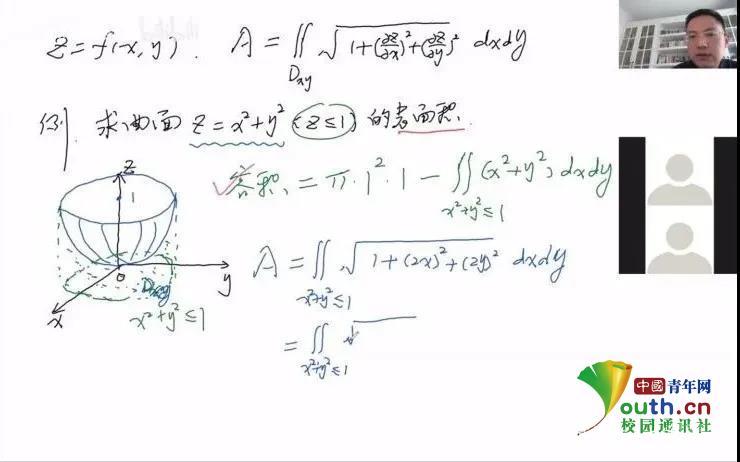 z=f(x,y). A=∬_{Dxy} √(1+(∂z/∂x)²+(∂z/∂y)²) dxdy
例. 求曲面 z=x²+y² (z≤1) 的表面积.
容积 = π·1²·1 - ∬_{x²+y²≤1} (x²+y²) dxdy
z
1
0
y
x
Dxy
x²+y²≤1
A=∬_{x²+y²≤1} √(1+(2x)²+(2y)²) dxdy
=∬_{x²+y²≤1} √
中國青年网
youth.cn
校园通讯社